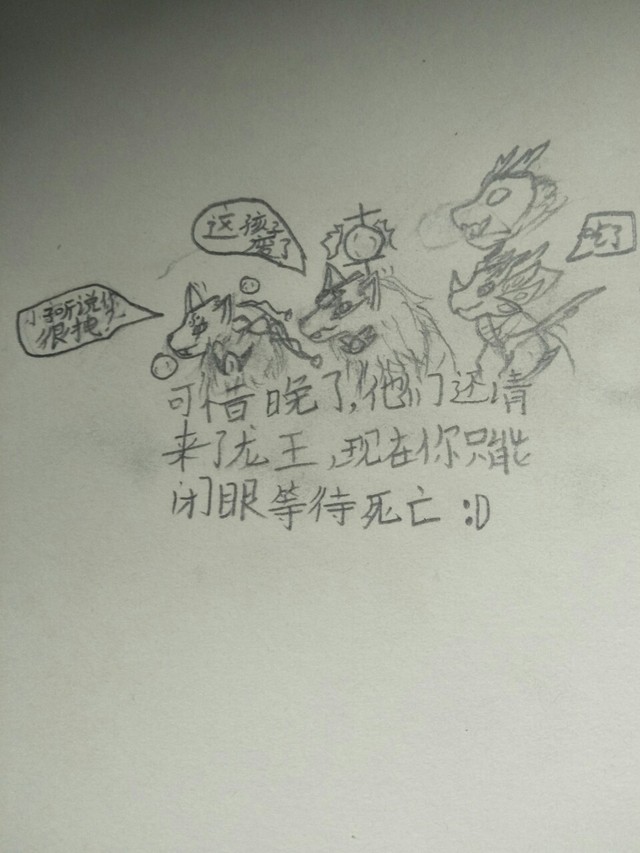 这孩子
变了
听说你
很拽
吃了
可惜晚了,他们还请
来了龙王,现在你只能
闭眼等待死亡:D